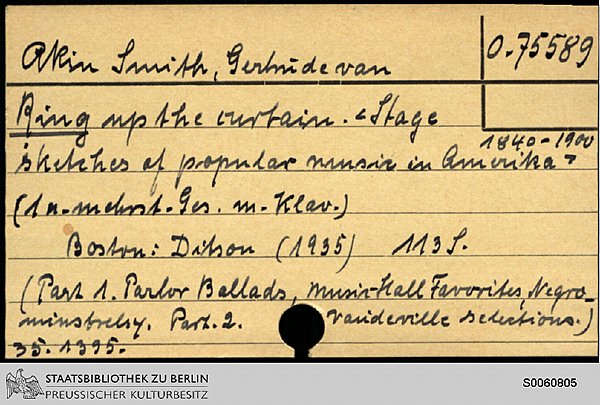 Akin Smith, Gertrude van
O.75589
Ring up the curtain. <Stage
1840-1900
sketches of popular music in Amerika>
(1 u. mehrst. Ges. m. Klav.)
Boston: Ditson (1935) 113 S.
(Part 1. Parlor Ballads, Music-Hall Favorites, Negro-
minstrelsy. Part. 2. Vaudeville selections.)
35.1395.
STAATSBIBLIOTHEK ZU BERLIN
PREUSSISCHER KULTURBESITZ
S0060805